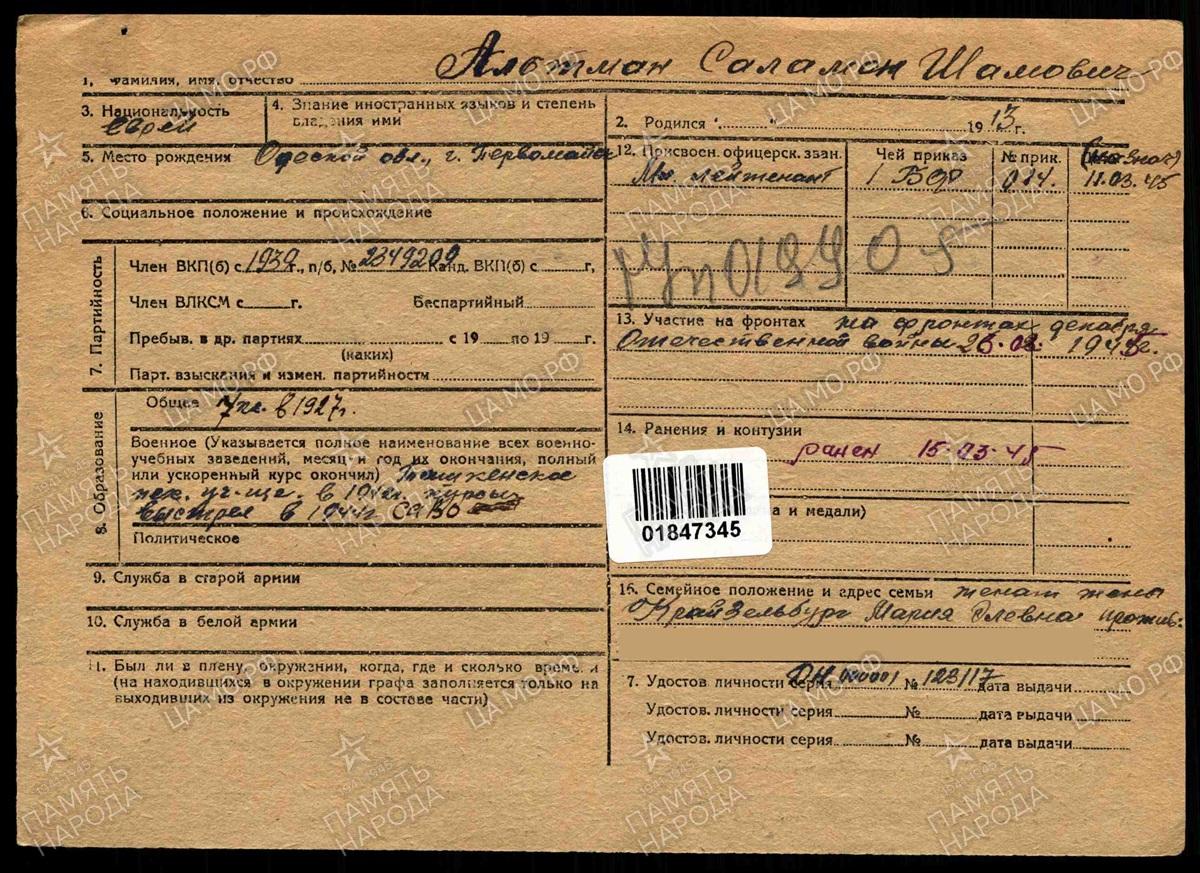 1, фамилия, имя, отчество Альтман Саламон Шамович
3. Национальность еврей
4. Знание иностранных языков и степень владения ими
2. Родился 1913 г.
5. Место рождения Одеской обл., г. Первомайск
6. Социальное положение и происхождение
7. Партийность
Член ВКП(б) с 1939 г., п/б, № 2349209 Канд. ВКП(б) с г,
Член ВЛКСМ с г. Беспартийный
Пребыв. в др. партиях с 19 по 19 г.
(каких)
Парт. взыскания и измен. партийности
8. Образование
Общее 7 кл. в 1927 г.
Военное (Указывается полное наименование всех военно-
учебных заведений, месяц и год их окончания, полный
или ускоренный курс окончил) Ташкенское
пех. уч-ще. в курсы
выстрел в 1944г САВО
Политическое
9. Служба в старой армии
10. Служба в белой армии
11. Был ли в плену, окружении, когда, где и сколько времени
(на находившихся в окружении графа заполняется только на
выходивших из окружения не в составе части)
12. Присвоен. офицерск. зван. Чей приказ № прик.
Мл. лейтенант 1 БФ 084. 11.03.45
13. Участие на фронтах на фронтах декабря
Отечественной войны 1943г.
14. Ранения и контузии
ранен 15-03-45
01847345
и медали)
16. Семейное положение и адрес семьи женат жена
Мария прожив:
7. Удостов. личности серия ДН 000001 № 123117 дата выдачи
Удостов. личности серия № дата выдачи
Удостов. личности серия № дата выдачи
ПАМЯТЬ НАРОДА
1941-1945
ЦА МО РФ